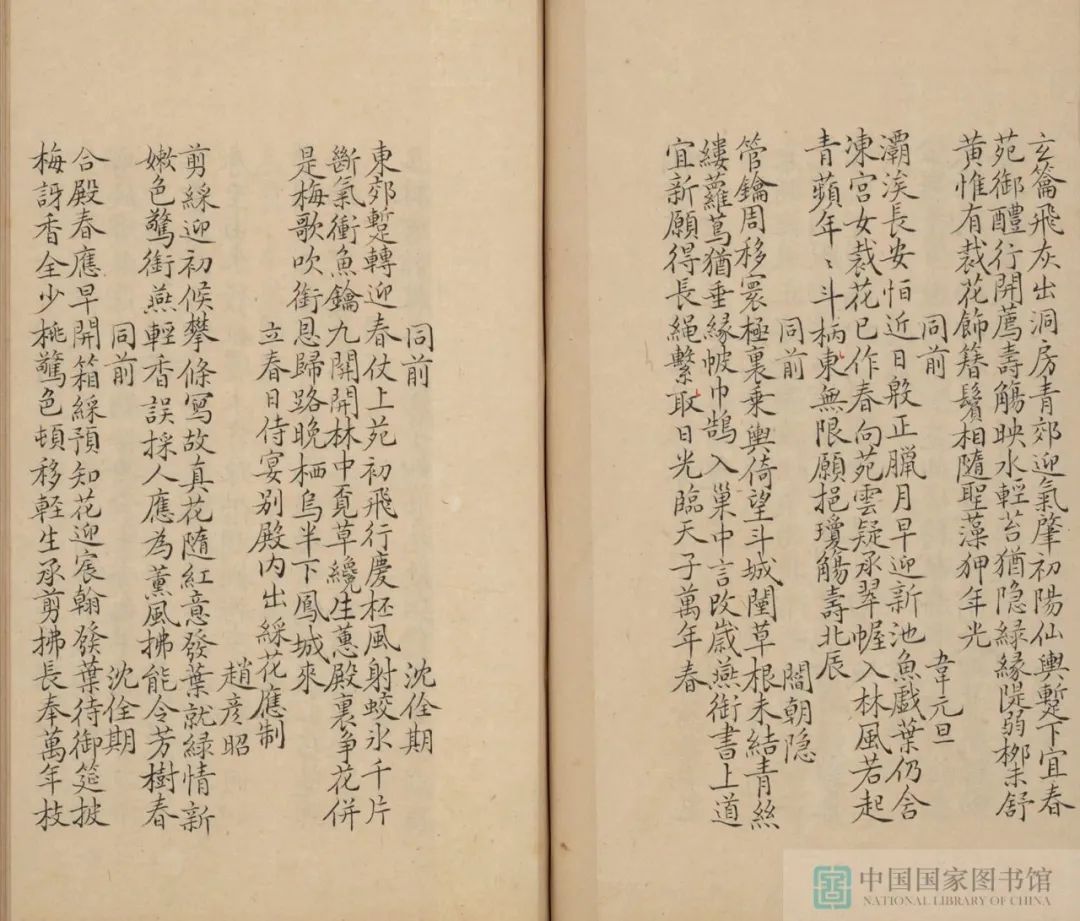 玄籥飛灰出洞房青郊迎氣肇初陽仙輿蹔下宜春
苑御醴行開薦壽觴映水輕苔猶隐緑緣隄弱栁未舒
黄惟有裁花飾簪鬢相隨聖藻狎年光
同前 韋元旦
灞涘長安怕近日殷正臘月早迎新池魚戲葉仍含
凍宫女裁花已作春向苑雲疑承翠幄入林風若起
青蘋年〻斗柄東無限願挹瓊觴壽北辰
同前 閻朝隐
管鑰周移寰極裏乗輿倚望斗城闉草根未結青絲
縷蘿蔦猶垂縁帔巾鵠入巢中言改歳燕銜書上道
宜新願得長繩繫取日光臨天子萬年春
同前 沈佺期
東郊蹔轉迎春仗上苑初飛行慶杯風射蛟氷千片
斷氣衝魚鑰九開開林中覔草纔生蕙殿裏争花併
是梅歌吹銜恩歸路晚栖烏半下鳳城來
立春日侍宴别殿内出綵花應制
趙彦昭
剪綵迎初候攀條寫故真花隨紅意發葉就緑情新
嫩色驚銜燕輕香誤採人應為薫風拂能令芳樹春
同前 沈佺期
合殿春應早開箱綵預知花迎宸翰發葉待御筵披
梅訝香全少桃驚色頓移輕生承剪拂長奉萬年枝
中国国家图书馆
NATIONAL LIBRARY OF CHINA